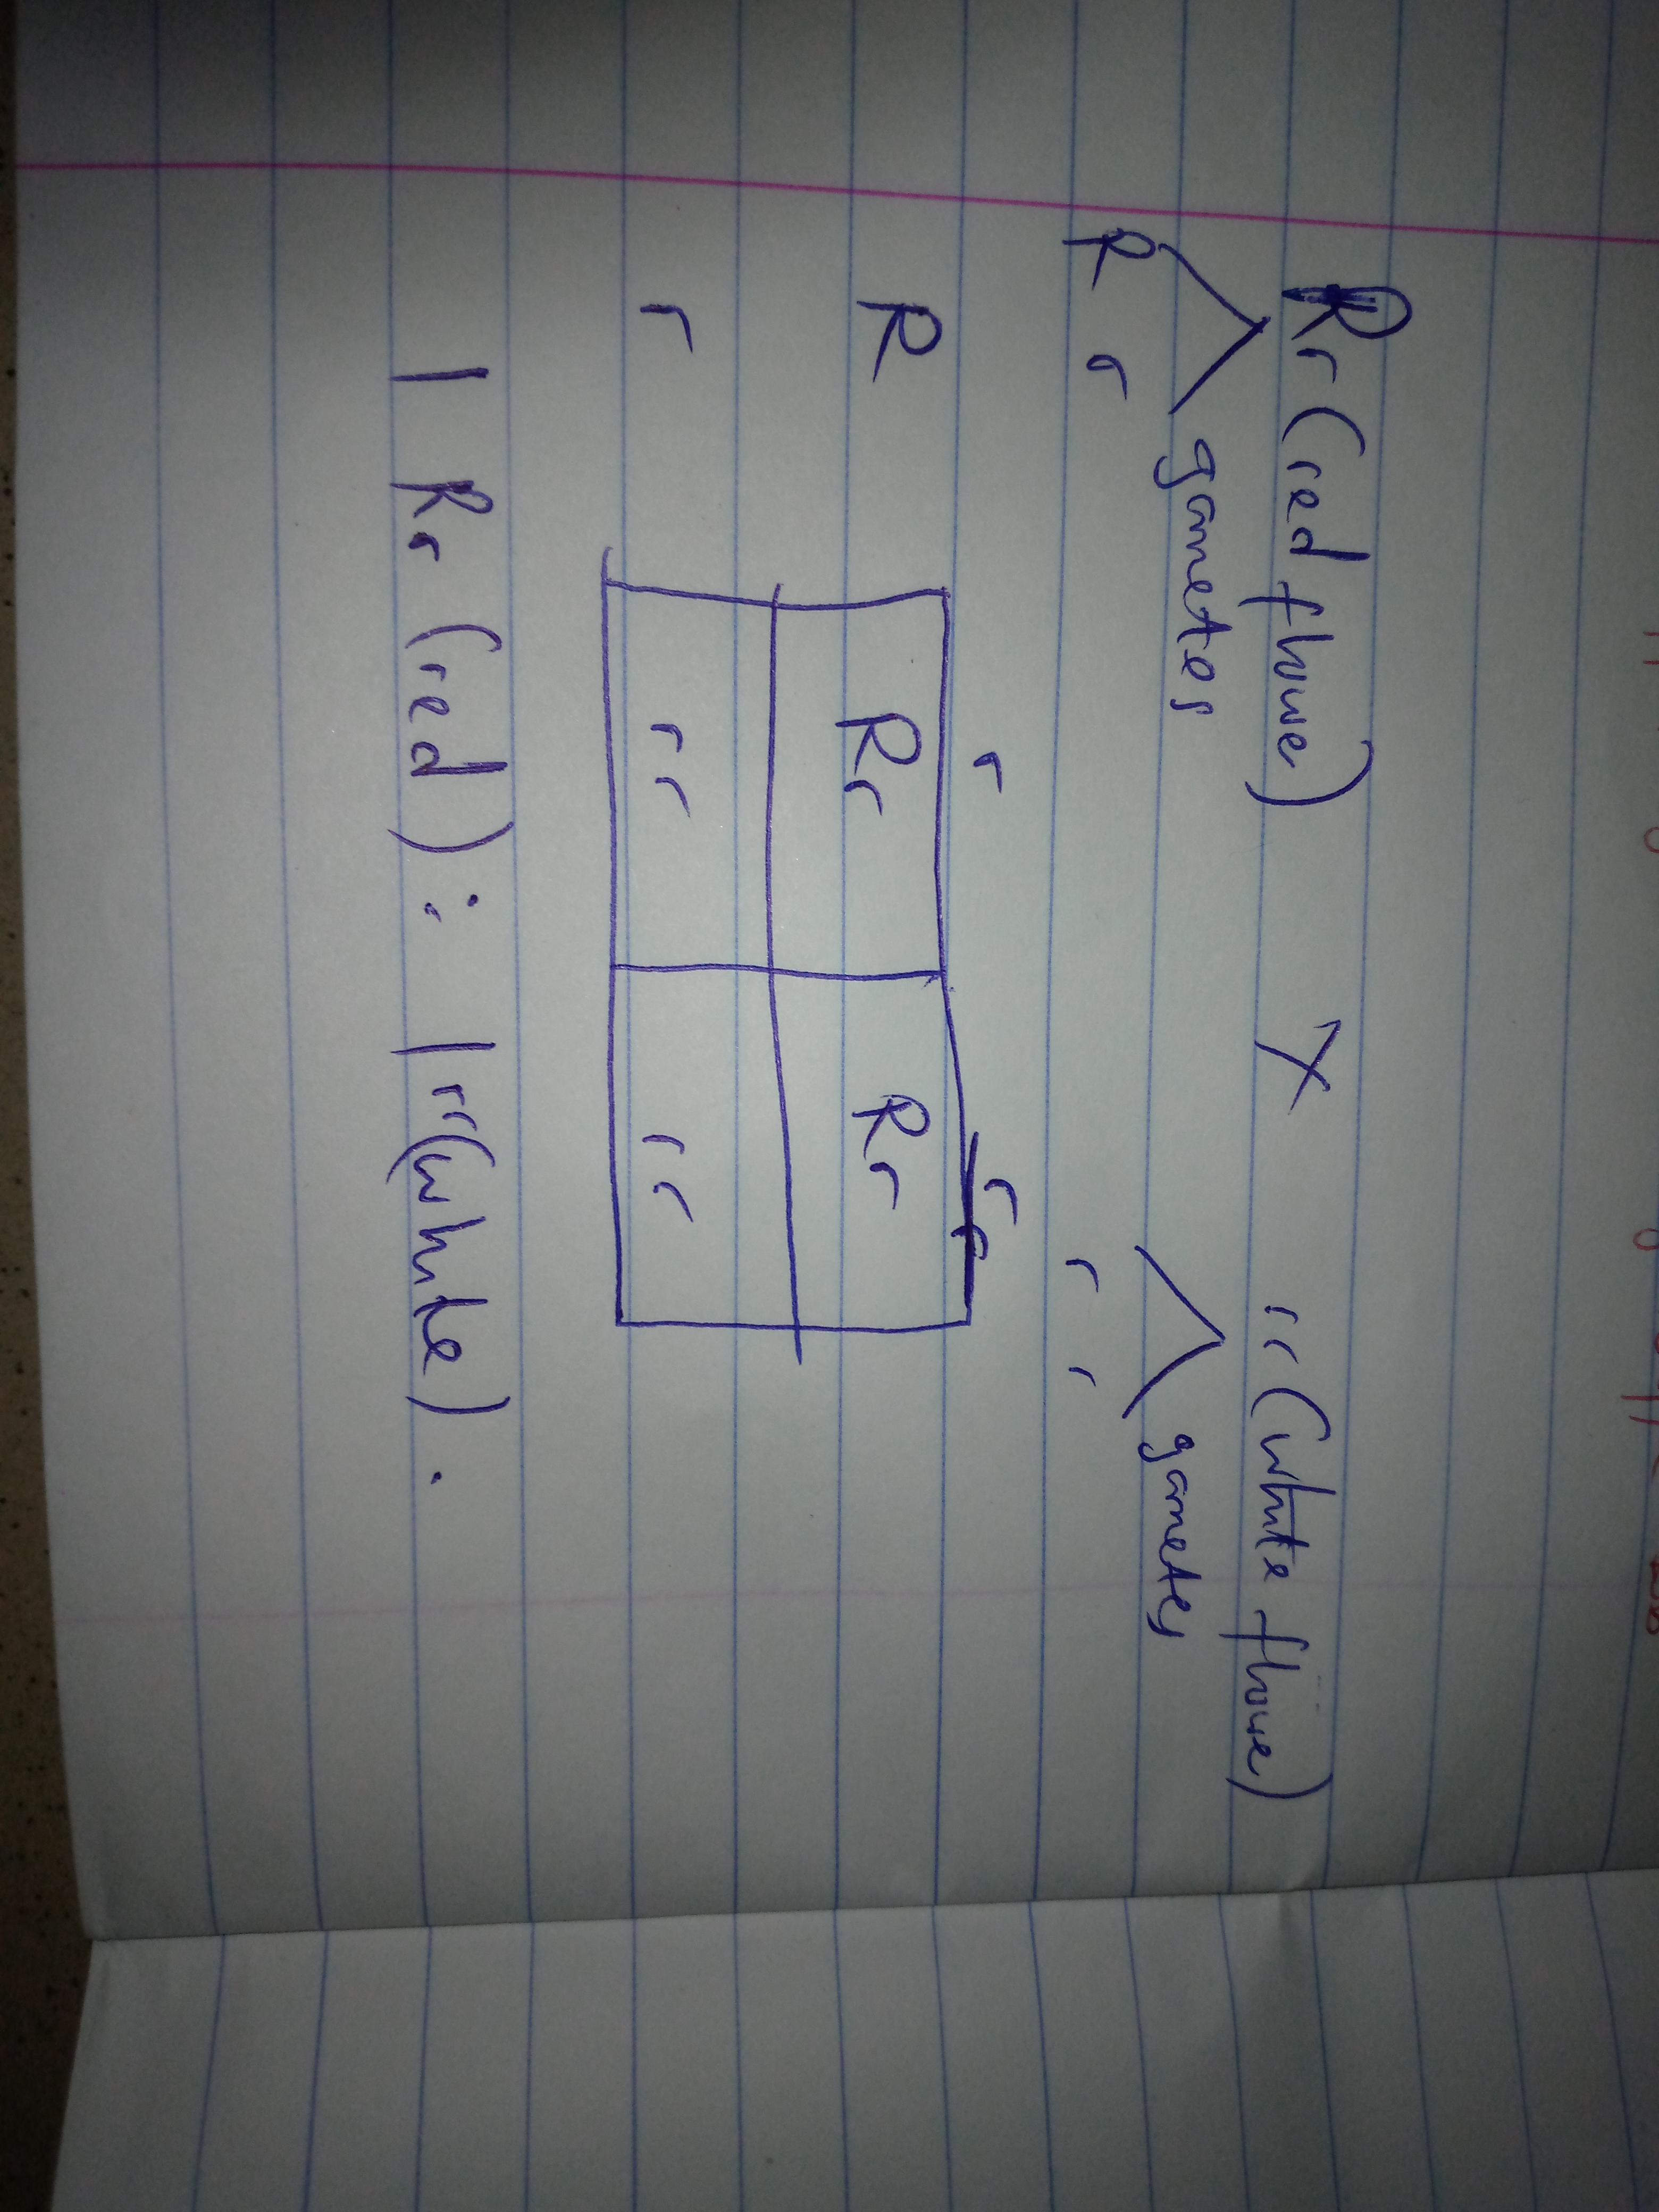 Rr (red flower) X rr (white flower)
gametes gametes
R r r r
r r
R Rr Rr
r rr rr
1 Rr (red) : 1 rr (white).